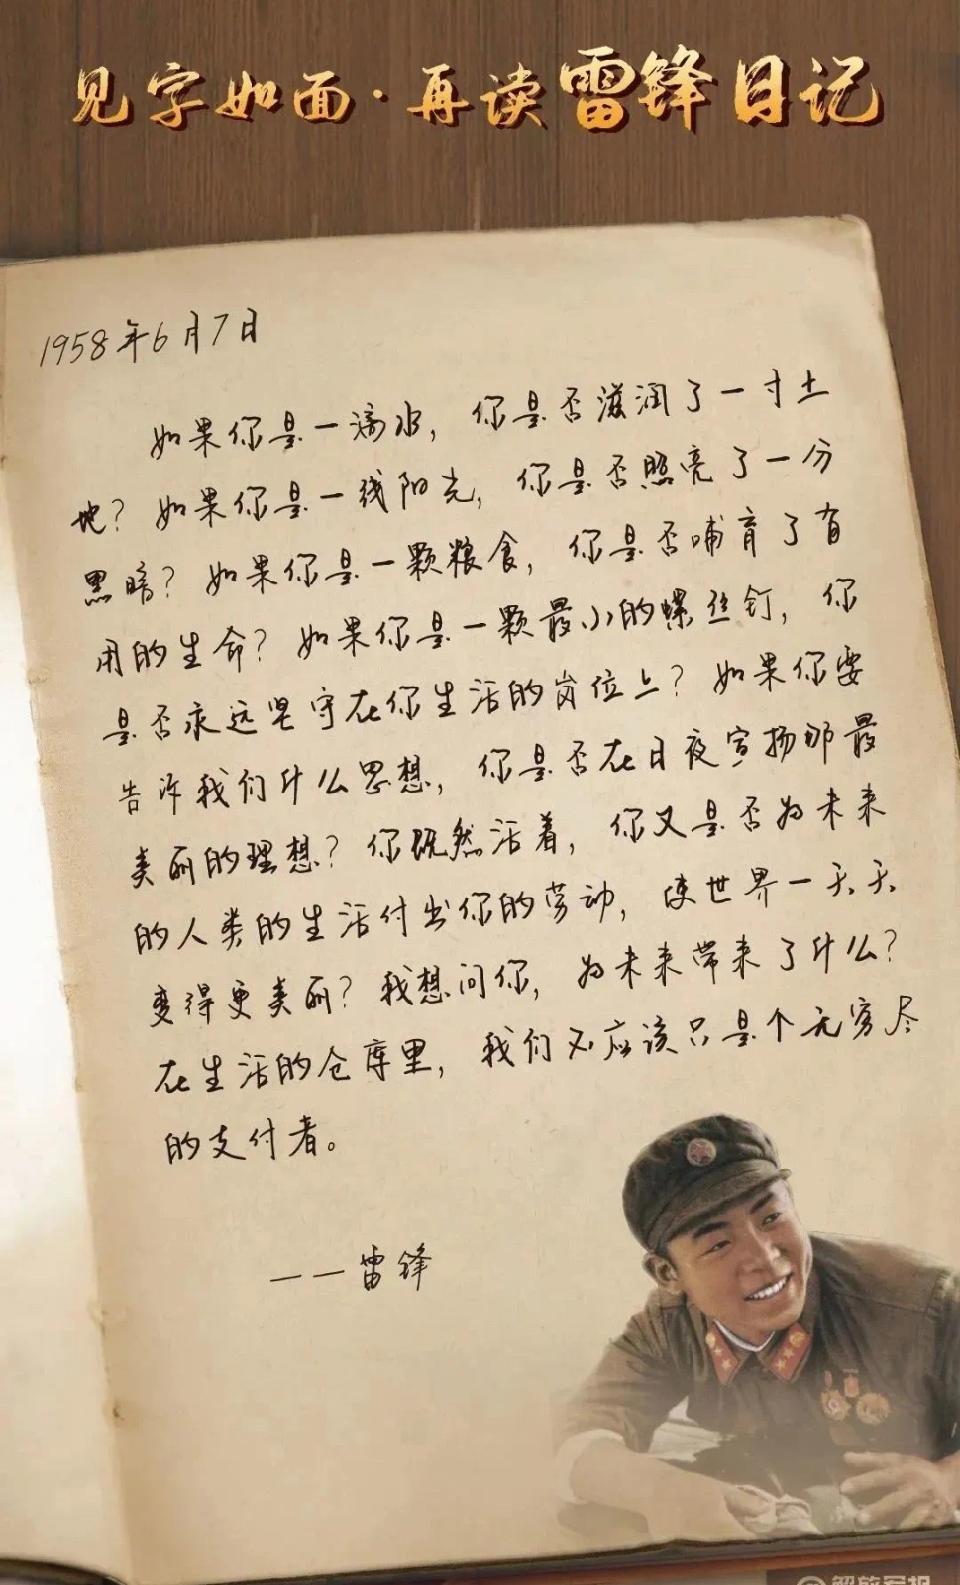 见字如面·再读雷锋日记
1958年6月7日
如果你是一滴水，你是否滋润了一寸土
地？如果你是一线阳光，你是否照亮了一分
黑暗？如果你是一颗粮食，你是否哺育了有
用的生命？如果你是一颗最小的螺丝钉，你
是否永远坚守在你生活的岗位上？如果你要
告诉我们什么思想，你是否在日夜宣扬那最
美丽的理想？你既然活着，你又是否为未来
的人类的生活付出你的劳动，使世界一天天
变得更美丽？我想问你，为未来带来了什么？
在生活的仓库里，我们不应该只是个无穷尽
的支付者。
——雷锋
解放军报